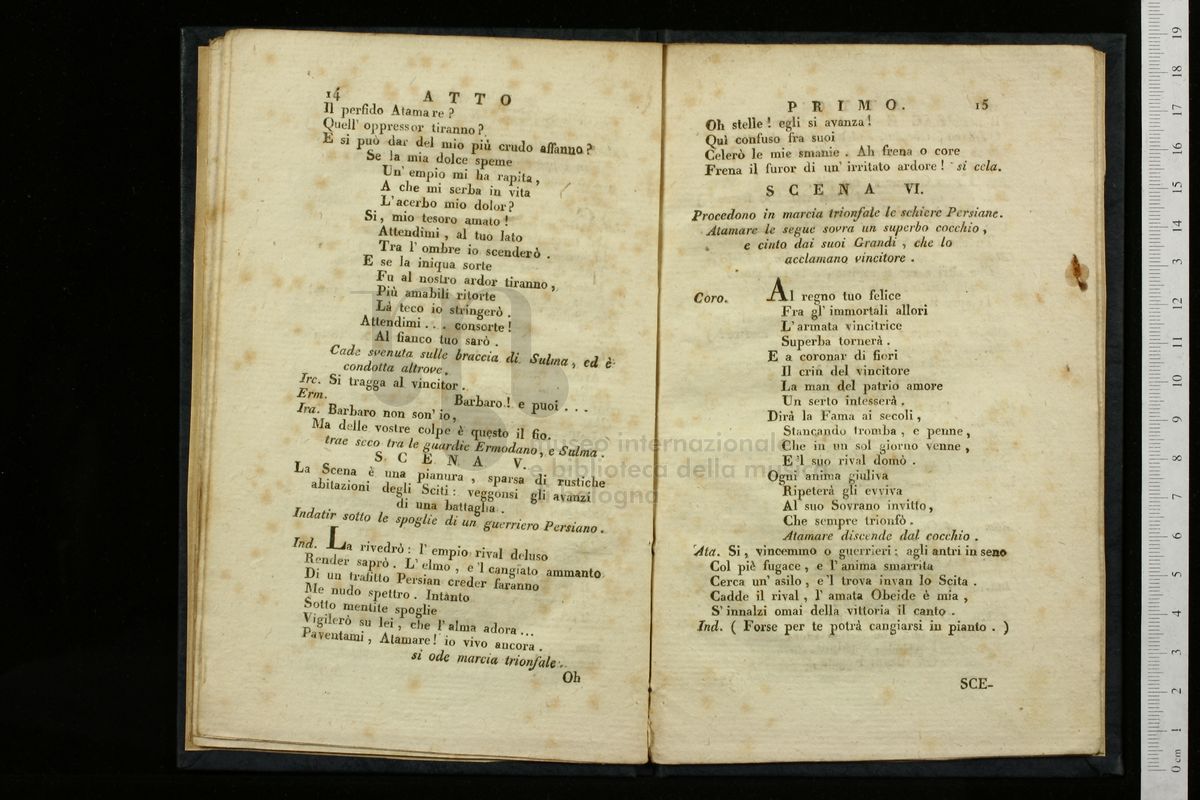 14 ATTO
Il perfido Atamare?
Quell' oppressor tiranno?
E si può dar del mio più crudo affanno?
Se la mia dolce speme
Un' empio mi ha rapita,
A che mi serba in vita
L'acerbo mio dolor?
Si, mio tesoro amato!
Attendimi, al tuo lato
Tra l' ombre io scenderò.
E se la iniqua sorte
Fu al nostro ardor tiranno,
Più amabili ritorte
Là teco io stringerò.
Attendimi... consorte!
Al fianco tuo sarò.
Cade svenuta sulle braccia di Sulma, ed è
condotta altrove.
Irc. Si tragga al vincitor.
Erm. Barbaro! e puoi...
Ira. Barbaro non son' io,
Ma delle vostre colpe è questo il fio.
trae seco tra le guardie Ermodano, e Sulma.
SCENA V.
La Scena è una pianura, sparsa di rustiche
abitazioni degli Sciti: veggonsi gli avanzi
di una battaglia.
Indatir sotto le spoglie di un guerriero Persiano.
Ind. La rivedrò: l' empio rival deluso
Render saprò. L' elmo, e 'l cangiato ammanto
Di un trafitto Persian creder faranno
Me nudo spettro. Intanto
Sotto mentite spoglie
Vigilerò su lei, che l' alma adora...
Paventami, Atamare! io vivo ancora.
si ode marcia trionfale.
Oh
PRIMO. 15
Oh stelle! egli si avanza!
Quì confuso fra suoi
Celerò le mie smanie. Ah frena o core
Frena il furor di un' irritato ardore! si cela.
SCENA VI.
Procedono in marcia trionfale le schiere Persiane.
Atamare le segue sovra un superbo cocchio,
e cinto dai suoi Grandi, che lo
acclamano vincitore.
Coro. Al regno tuo felice
Fra gl' immortali allori
L' armata vincitrice
Superba tornerà.
E a coronar di fiori
Il crin del vincitore
La man del patrio amore
Un serto intesserà.
Dirà la Fama ai secoli,
Stancando tromba, e penne,
Che in un sol giorno venne,
E 'l suo rival domò.
Ogni anima giuliva
Ripeterà gli evviva
Al suo Sovrano invitto,
Che sempre trionfò.
Atamare discende dal cocchio.
Ata. Si, vincemmo o guerrieri: agli antri in seno
Col piè fugace, e l' anima smarrita
Cerca un' asilo, e 'l trova invan lo Scita.
Cadde il rival, l' amata Obeide è mia,
S' innalzi omai della vittoria il canto.
Ind. (Forse per te potrà cangiarsi in pianto.)
SCE-
museo internazionale
e biblioteca della musica
bologna
0 cm 1 2 3 4 5 6 7 8 9 10 11 12 13 14 15 16 17 18 19